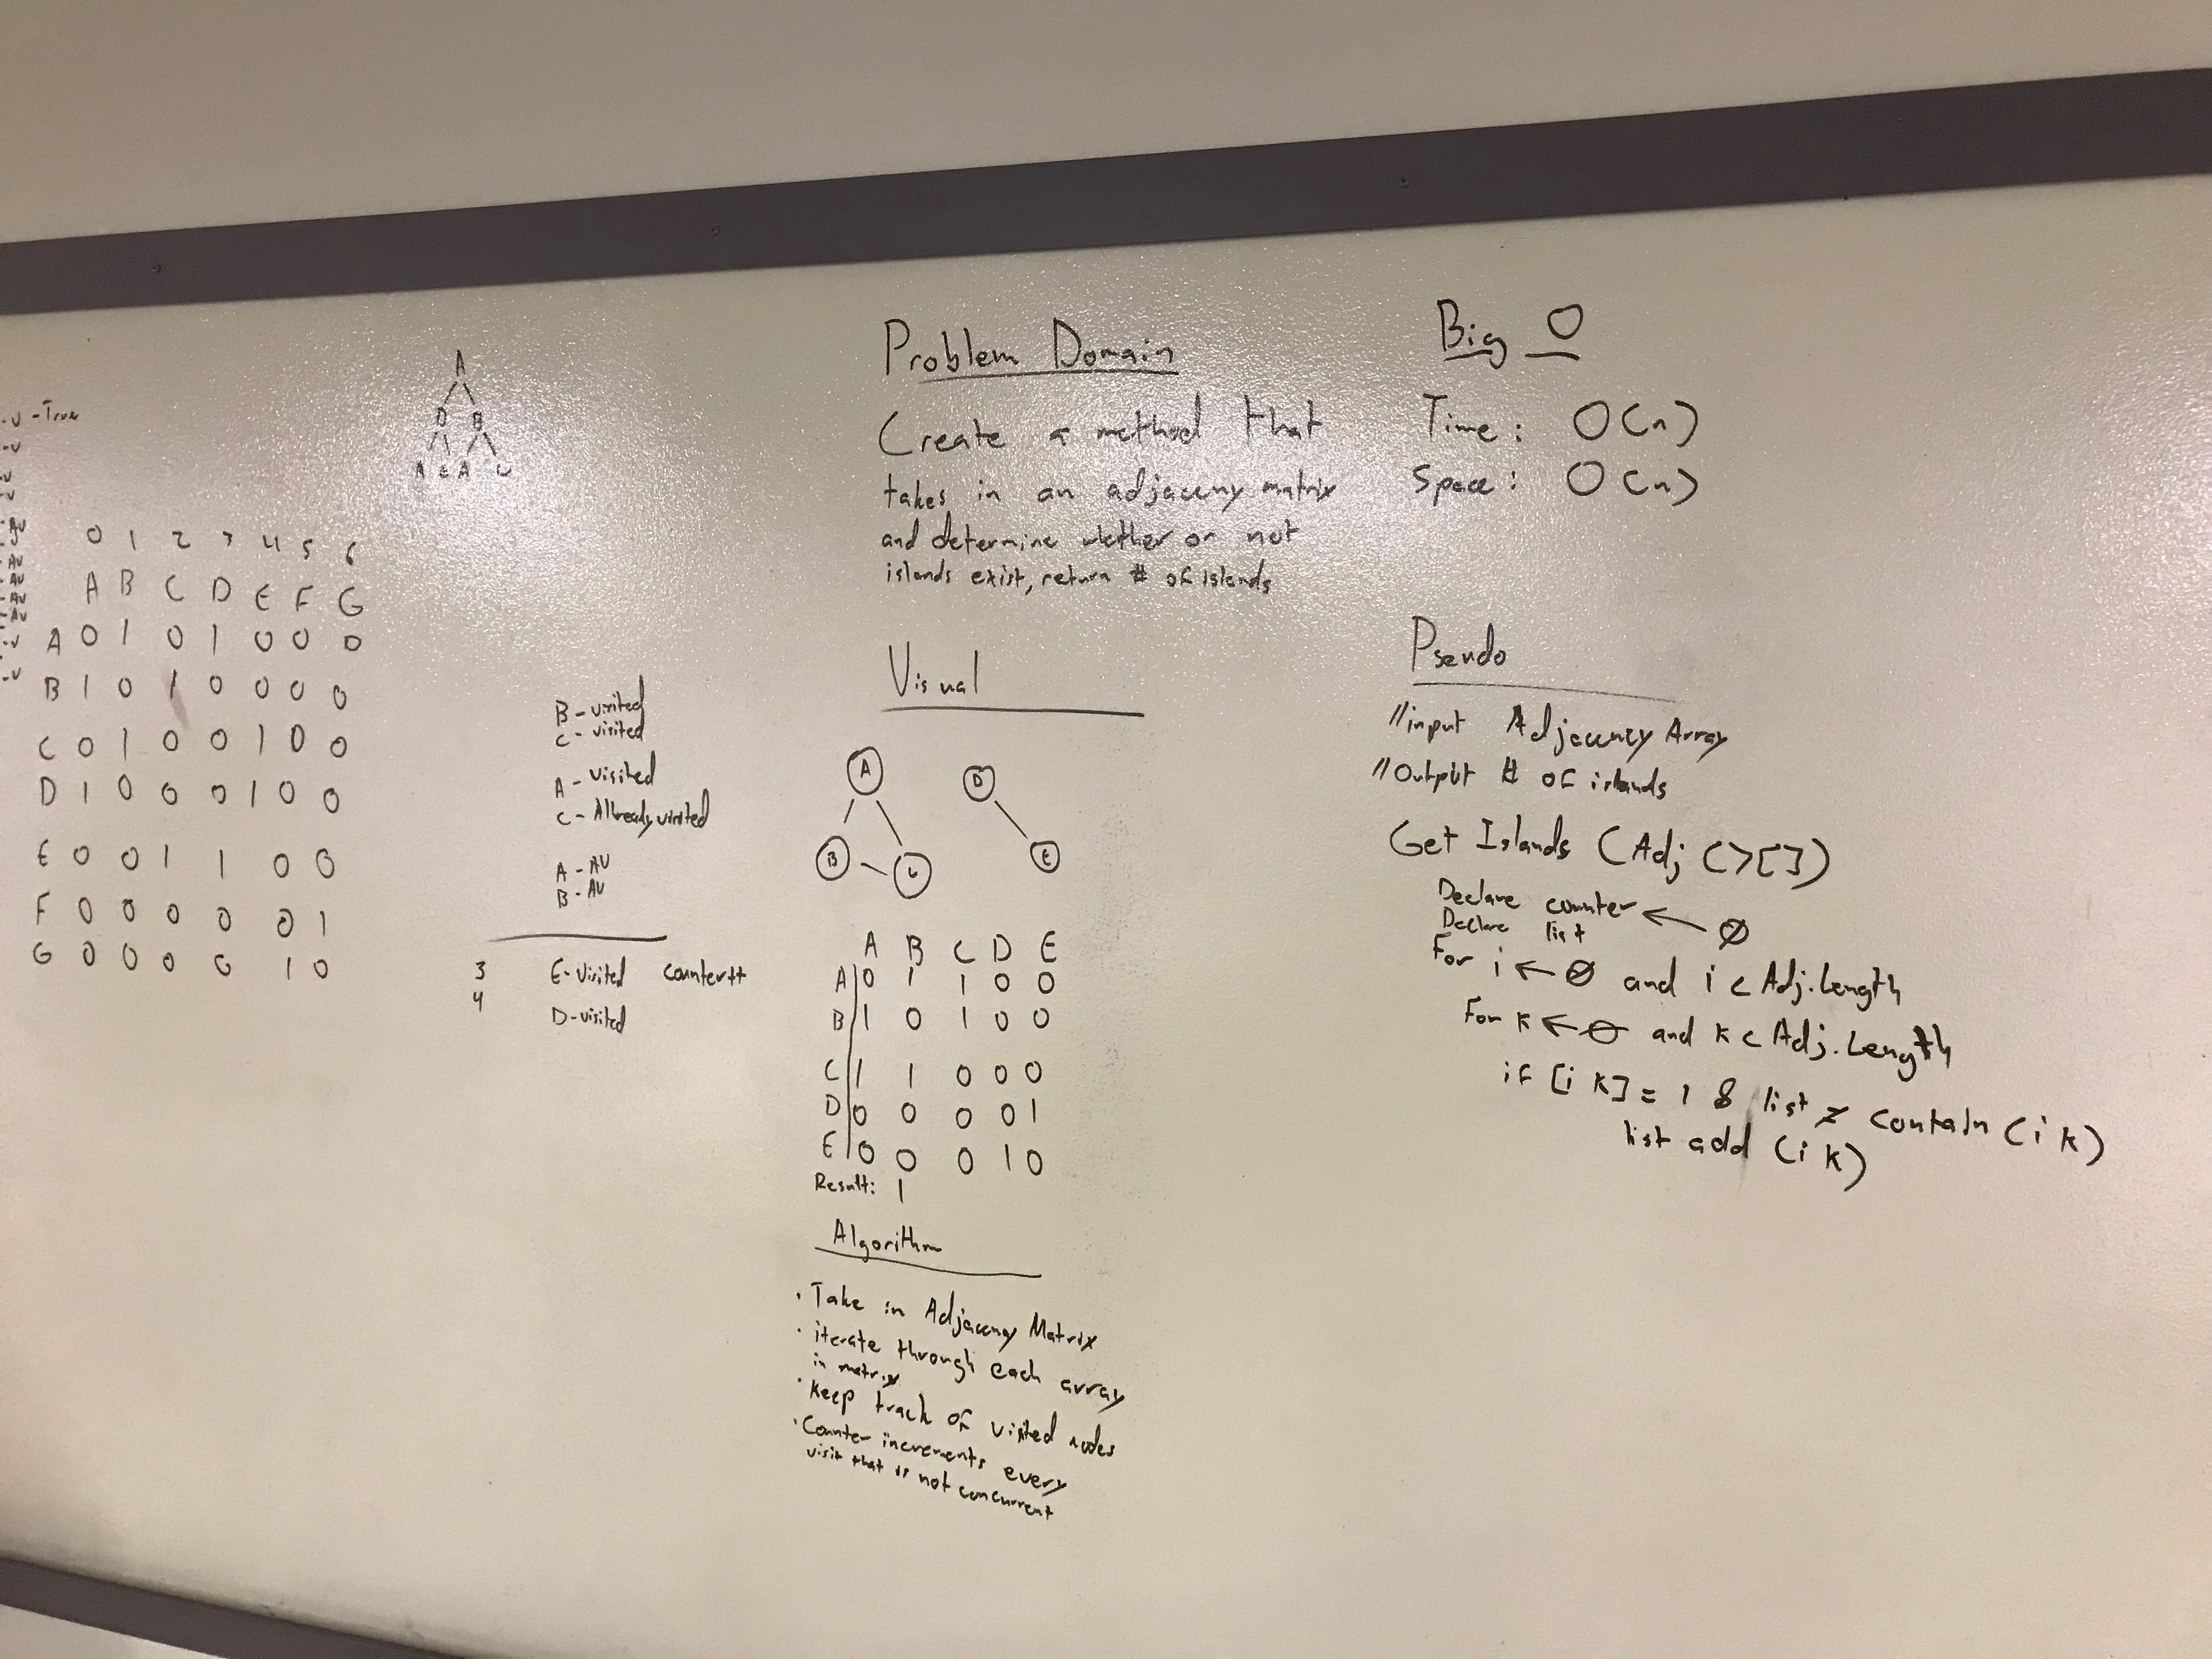 -v -True
-v
-v
-v
-AV
-AV
-AV
-AV
-AV
-v
-v
A
D B
A A C
0 1 2 3 4 5 6
A B C D E F G
A 0 1 0 1 0 0 0
B 1 0 1 0 0 0 0
C 0 1 0 0 1 0 0
D 1 0 0 0 1 0 0
E 0 0 1 1 0 0
F 0 0 0 0 0 1
G 0 0 0 0 1 0
B - visited
C - visited
A - visited
C - Allready visited
A - AV
B - AV
3 E-visited counter++
4 D-visited
Problem Domain
Create a method that
takes in an adjaceny matrix
and determine whether or not
islands exist, return # of islands
Visual
A D
B C E
A B C D E
A 0 1 1 0 0
B 1 0 1 0 0
C 1 1 0 0 0
D 0 0 0 0 1
E 0 0 0 1 0
Result: 1
Algorithm
· Take in Adjaceny Matrix
· iterate through each array
in matrix
· keep track of visited nodes
· Counter increments every
visit that is not concurrent
Big O
Time: O(n)
Space: O(n)
Pseudo
//input Adjacency Array
//Output # of islands
Get Islands (Adj <>[])
Declare counter ← 0
Declare list
For i ← 0 and i < Adj.Length
For k ← 0 and k < Adj.Length
if [i k] = 1 & list ≠ contain (i k)
list add (i k)